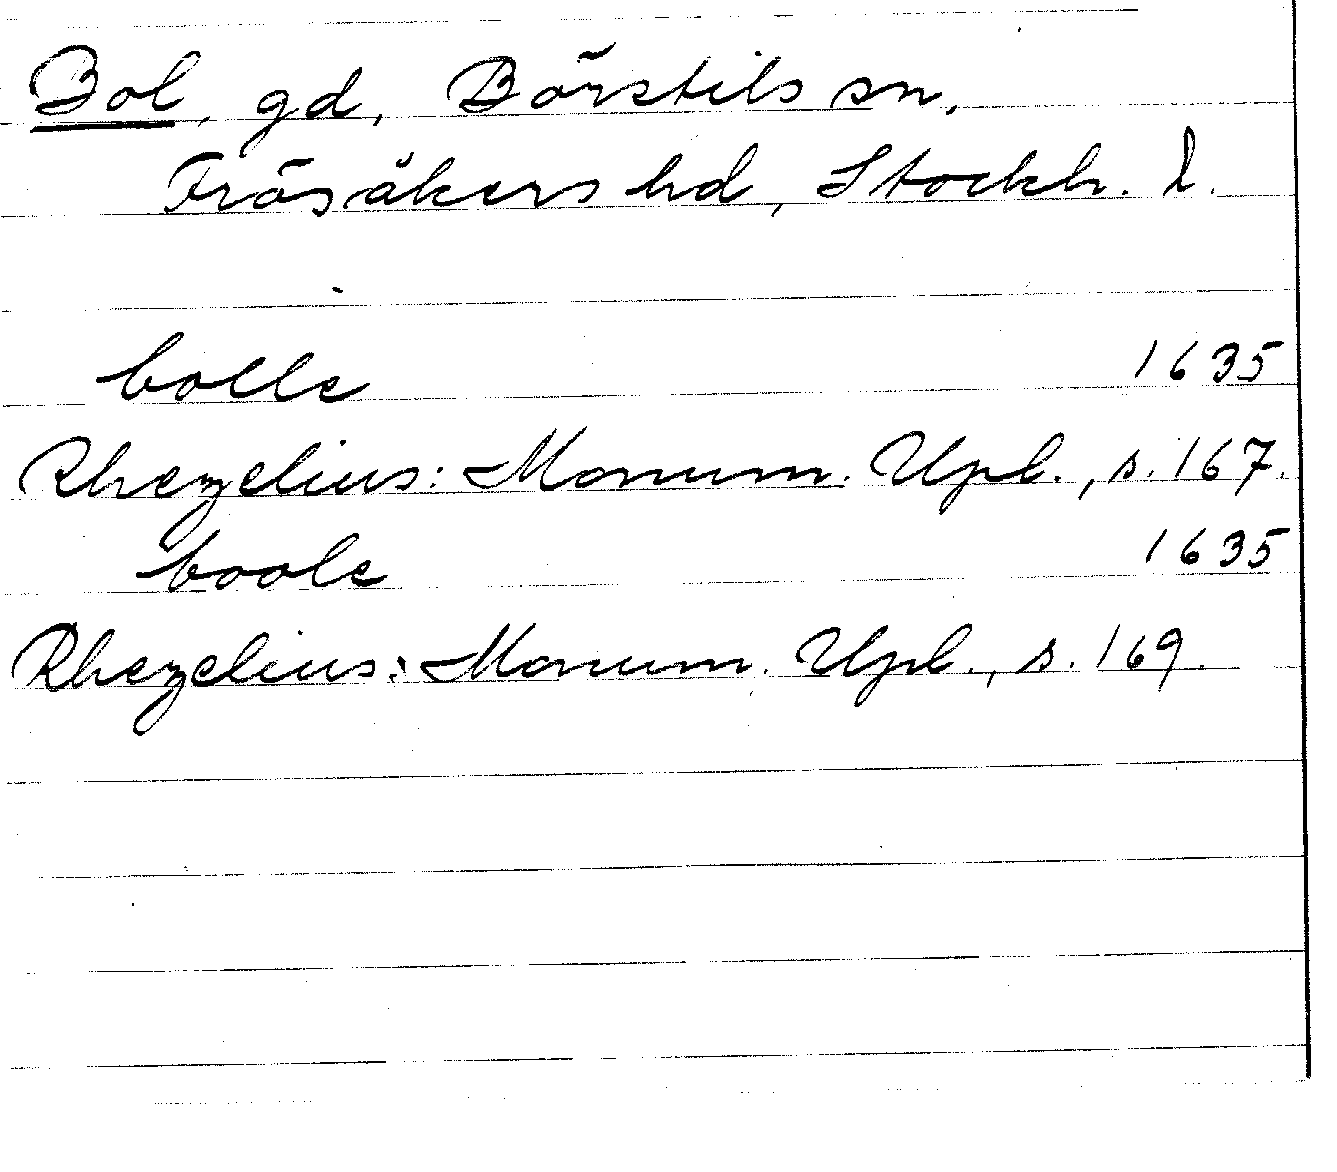 Bol, gd, Börstils sn,
Frösåkers hd, Stockh. l.
bolle 1635
Rhezelius: Monum. Upl., s. 167.
boole 1635
Rhezelius: Monum. Upl., s. 169.